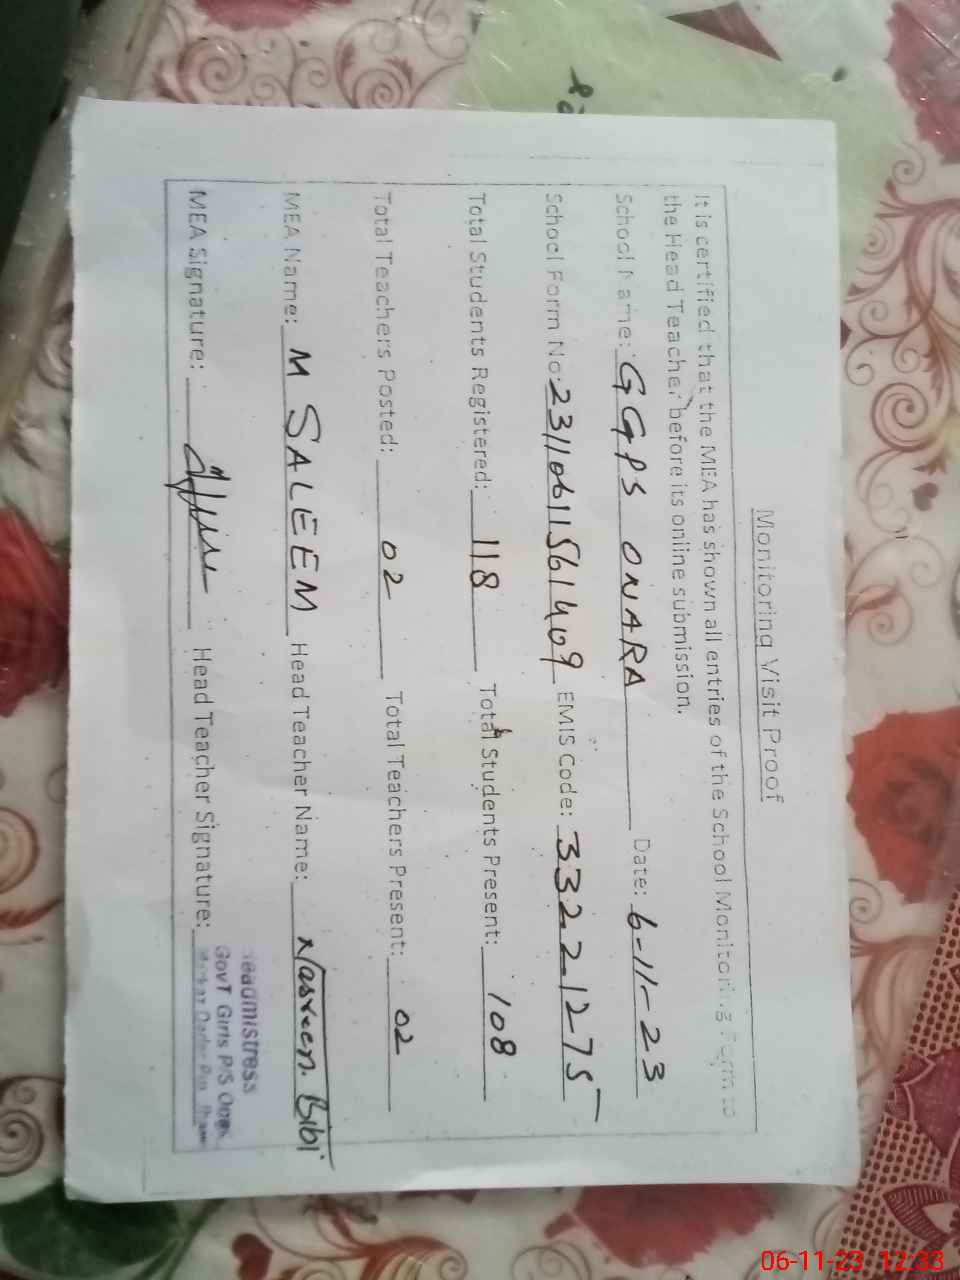 Monitoring Visit Proof
It is certified that the MEA has shown all entries of the School Monitoring Form to
the Head Teacher before its online submission.
School Name: GGPS ONARA Date: 6-11-23
School Form No: 23110611561409 EMIS Code: 33221275
Total Students Registered: 118 Total Students Present: 108
Total Teachers Posted: 02 Total Teachers Present: 02
MEA Name: M SALEEM Head Teacher Name: Nasreen Bibi
MEA Signature: Head Teacher Signature:
Headmistress
GovT Girls P/S
06-11-23 12:33